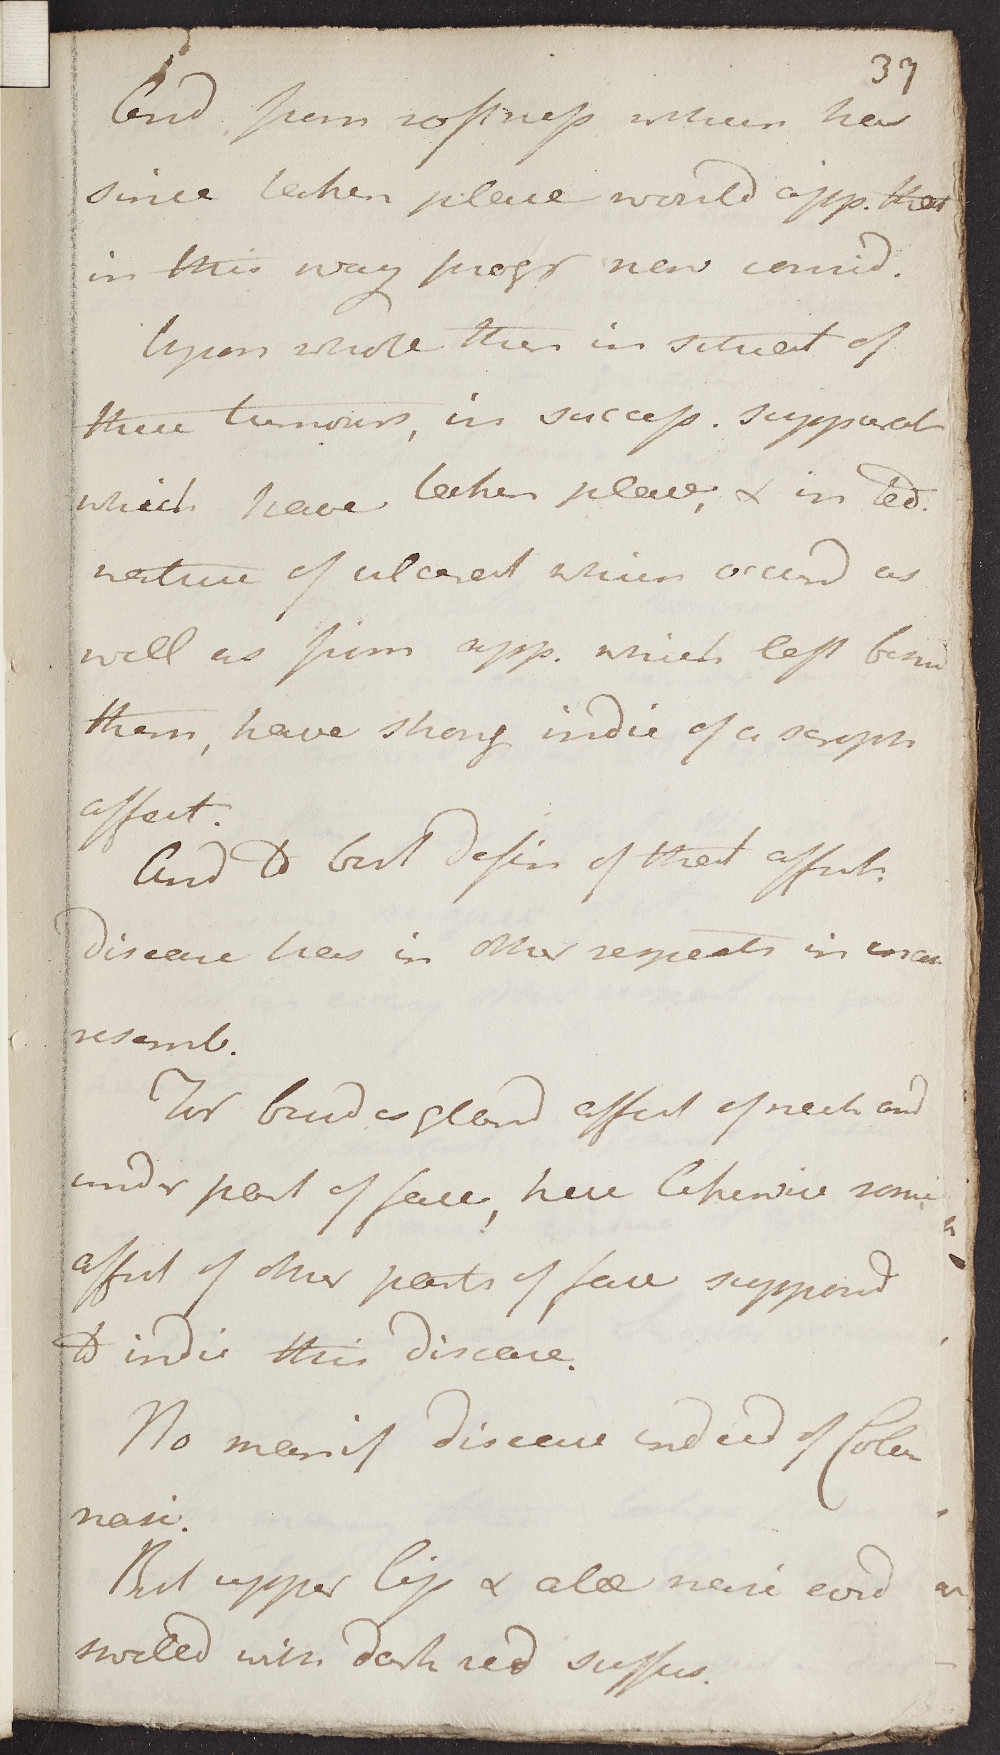 37
And from softness which has
since taken place would app. that
in this way progr now consid.
Upon whole then in situat of
these tumours, in success. suppurat
which have taken place, & in
nature of ulcerat which occurd as
well as from app. which left behind
them, have strong indic of a scroph
affect.
And to best of that affect.
Disease has in other respects in
resemb.
For besides gland affect of neck and
under part of face, here likewise some
affect of other parts of face supposed
to indic this disease.
No manif disease indeed of Colum
nasi.
But upper lip & alæ nasi
swelled with dark red suffus.